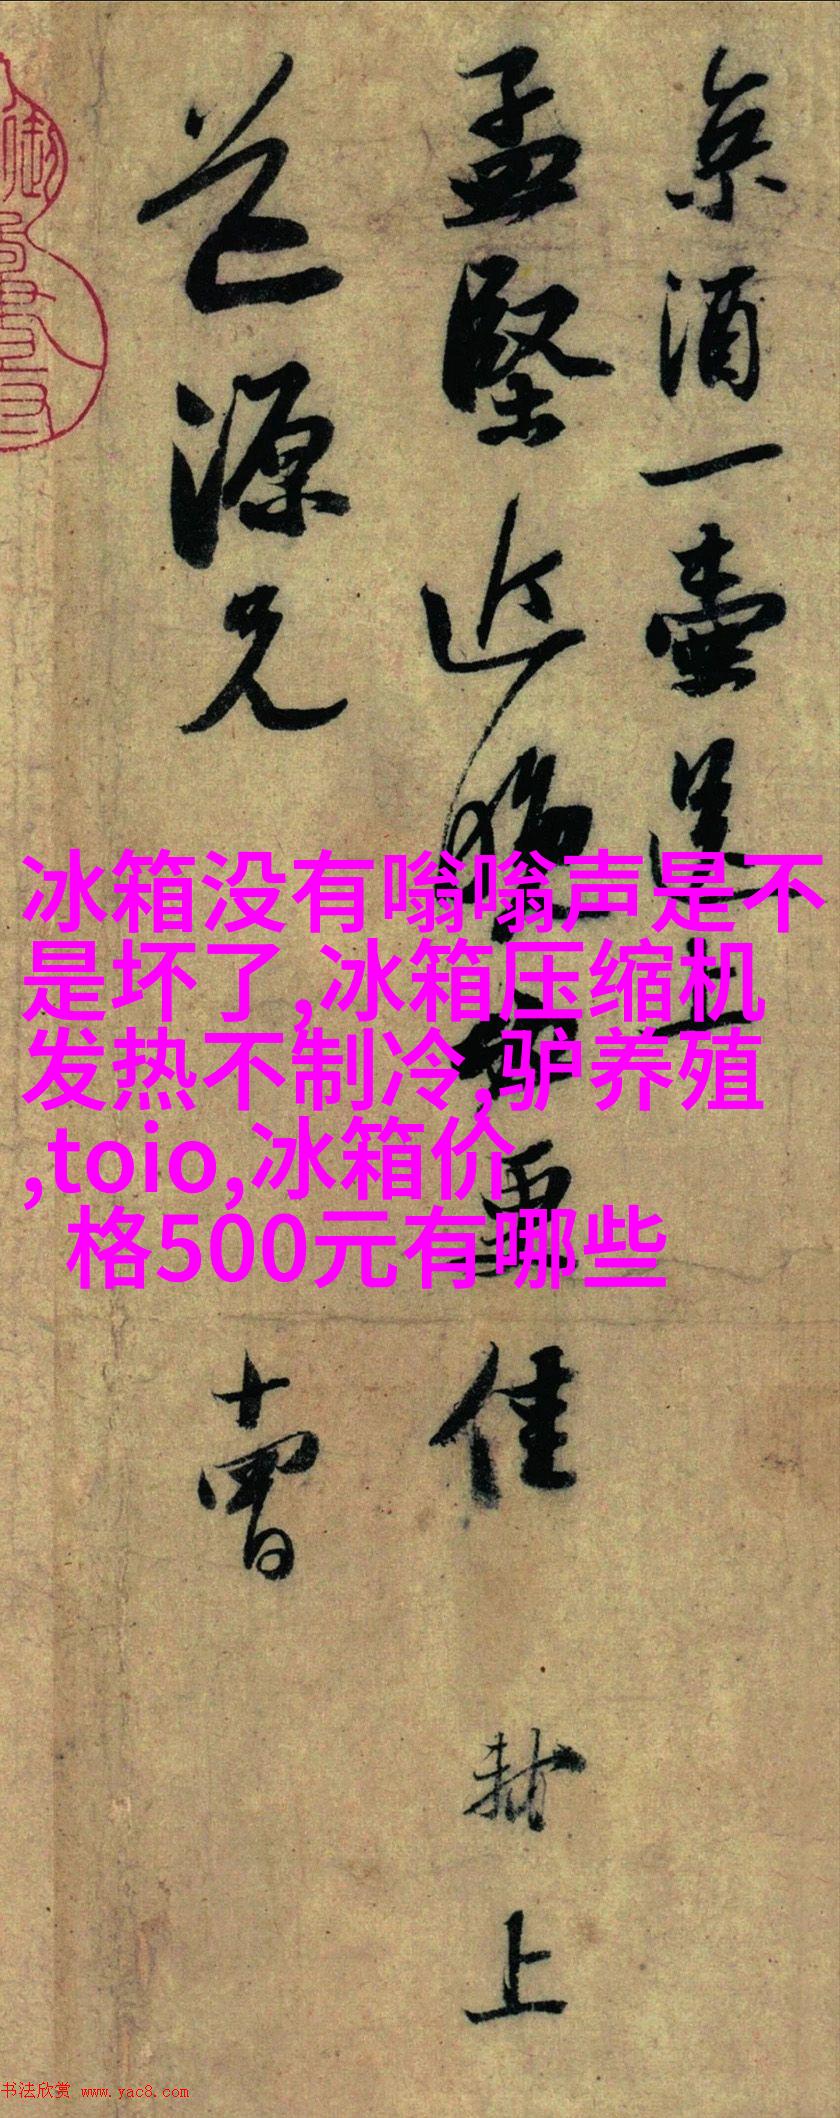 京酒一壶送上
孟坚近晚必更佳
封上
道源兄
十曾
冰箱没有嗡嗡声是不
是坏了,冰箱压缩机
发热不制冷,驴养殖
,toio,冰箱价
格500元有哪些
书法欣赏 www.yac8.com